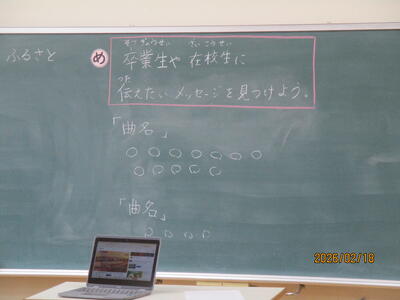 ふるさと
め
そつぎょうせい ざいこうせい
卒業生や 在校生に
つた
伝えたいメッセージを見つけよう。
「曲名」
○○○○○○○
○○○○○
「曲名」
○○○○
2026/02/18